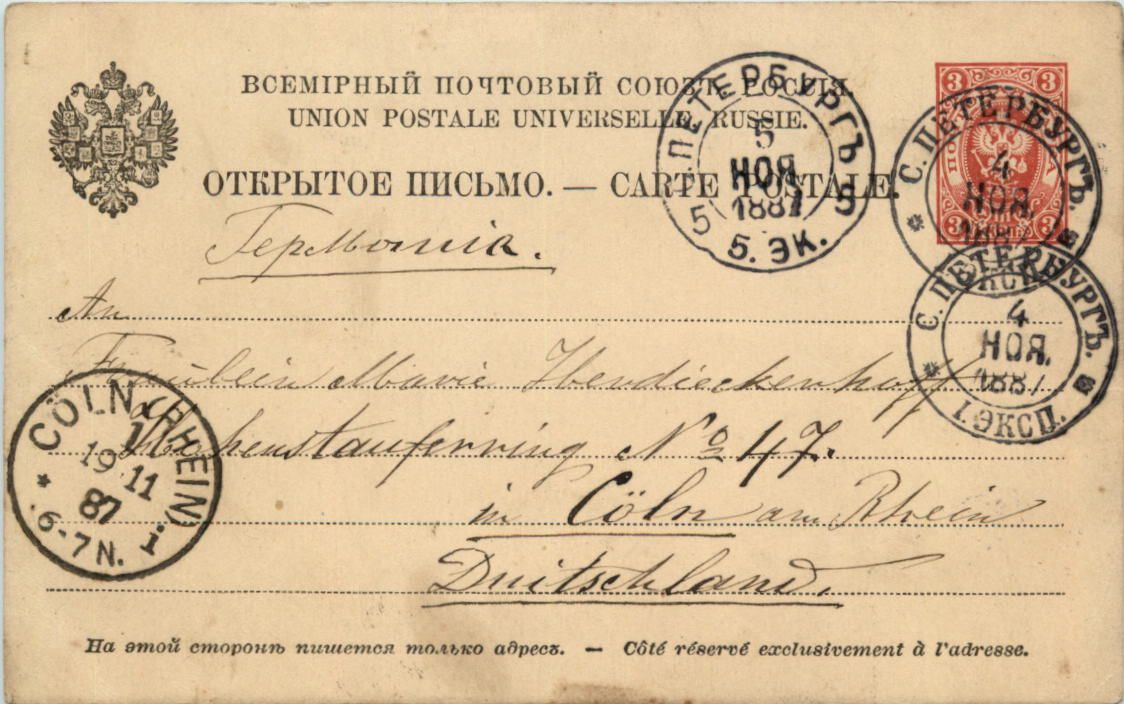 ВСЕМІРНЫЙ ПОЧТОВЫЙ СОЮЗЪ. РОССІЯ.
UNION POSTALE UNIVERSELLE. RUSSIE.
ОТКРЫТОЕ ПИСЬМО. — CARTE POSTALE.
3 3
3 3
С. ПЕТЕРБУРГЪ
5
НОЯ
1887
5 5
5. ЭК.
С. ПЕТЕРБУРГЪ.
4
НОЯ.
С. ПЕТЕРБУРГЪ.
4
НОЯ.
1887
I. ЭКСП.
Германія.
An
Fräulein Marie
Hohenstaufenring No 47.
in Cöln am Rhein
Duitschland.
CÖLN (RHEIN)
19 11
87
6-7 N.
На этой сторонѣ пишется только адресъ. — Côté réservé exclusivement à l'adresse.